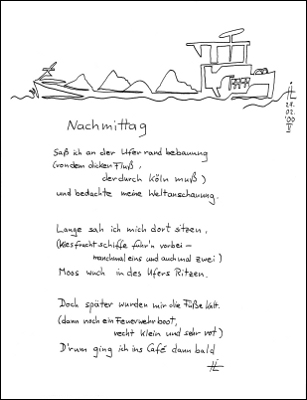 Nachmittag
Saß ich an der Uferrandbebauung
(von dem dicken Fluß,
der durch Köln muß)
und bedachte meine Weltanschauung.
Lange sah ich mich dort sitzen,
(Kiesfrachtschiffe fuhr'n vorbei –
manchmal eins und auch mal zwei)
Moos wuch in des Ufers Ritzen.
Doch später wurden mir die Füße kalt.
(dann noch ein Feuerwehrboot,
recht klein und sehr rot)
D'rum ging ich ins Café dann bald
21.
02.
'00
V